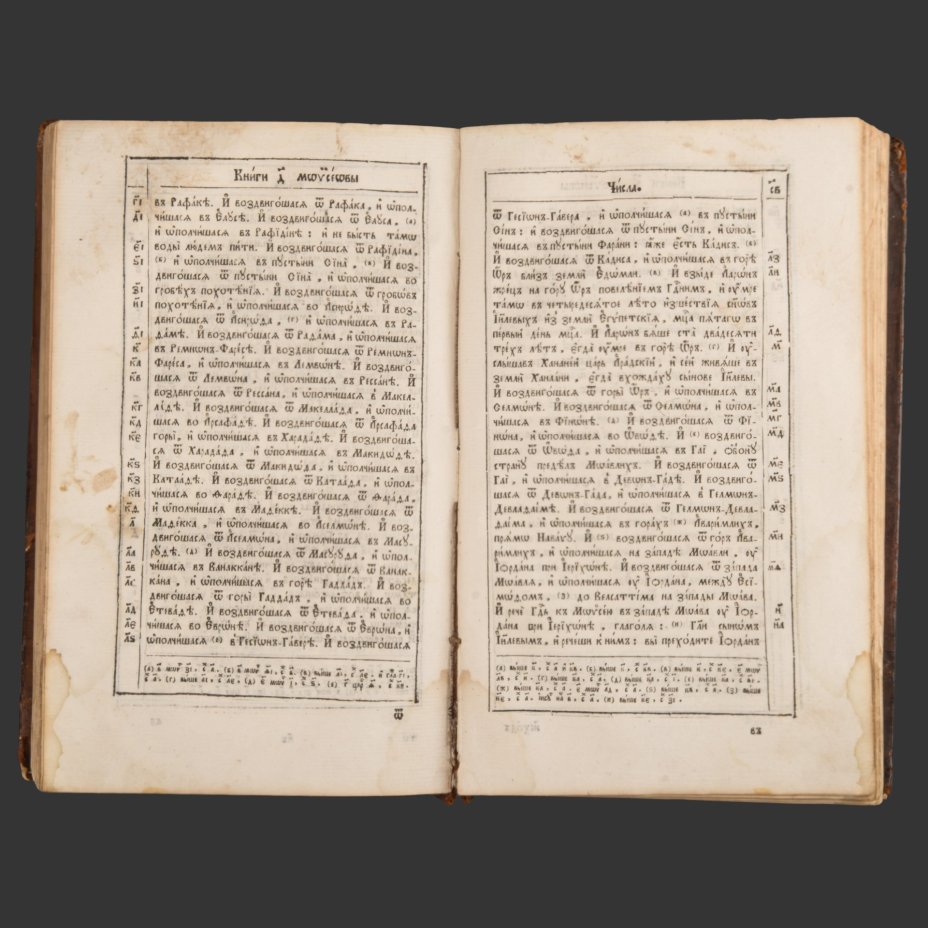 Кни́ги д҃ мѡѷсе́ѡвы
гі въ Рафа́кѣ. И҆ воздвиго́шасѧ ѿ Рафа́ка, и҆ ѡ҆пол-
ді чи́шасѧ въ Е҆лꙋ́сѣ. И҆ воздвиго́шасѧ ѿ Е҆лꙋ́са, (а)
и҆ ѡ҆полчи́шасѧ въ Рафїді́нѣ : и҆ не бы́сть та́мѡ
еі воды̀ лю́демъ пи́ти. И҆ воздвиго́шасѧ ѿ Рафїді́на,
ѕі (б) и҆ ѡ҆полчи́шасѧ въ пꙋсты́ни Сїна́и . (в) И҆ воз-
двиго́шасѧ ѿ пꙋсты́ни Сїна̀, и҆ ѡ҆полчи́шасѧ во
зі гробѣ́хъ похотѣ́нїѧ. И҆ воздвиго́шасѧ ѿ гробѡ́въ
иі похотѣ́нїѧ, и҆ ѡ҆полчи́шасѧ во А҆сирѡ́дѣ. И҆ воз-
двиго́шасѧ ѿ А҆сирѡ́да , (г) и҆ ѡ҆полчи́шасѧ въ Ра-
ѳі да́мѣ. И҆ воздвиго́шасѧ ѿ Рада́ма , и҆ ѡ҆полчи́шасѧ
к въ Ремнѡ́нъ-Фаре́сѣ. И҆ воздвиго́шасѧ ѿ Ремнѡ́нъ-
ка Фаре́са , и҆ ѡ҆полчи́шасѧ въ Лемвѡ́нѣ. И҆ воздвиго́-
кв шасѧ ѿ Лемвѡ́на , и҆ ѡ҆полчи́шасѧ въ Ресса́нѣ. И҆
воздвиго́шасѧ ѿ Ресса́на , и҆ ѡ҆полчи́шасѧ в̾ Макел-
ла́дѣ. И҆ воздвиго́шасѧ ѿ Макелла́да , и҆ ѡ҆полчи́-
кг шасѧ во А҆рсафа́дѣ. И҆ воздвиго́шасѧ ѿ А҆рсафа́да
кд
ке горы̀, и҆ ѡ҆полчи́шасѧ въ Харада́дѣ. И҆ воздвиго́ша-
сѧ ѿ Харада́да , и҆ ѡ҆полчи́шасѧ въ Макидѡ́дѣ.
кѕ И҆ воздвиго́шасѧ ѿ Макидѡ́да, и҆ ѡ҆полчи́шасѧ въ
кз Катаа́дѣ. И҆ воздвиго́шасѧ ѿ Катаа́да , и҆ ѡ҆пол-
ки чи́шасѧ во Ѳара́дѣ. И҆ воздвиго́шасѧ ѿ Ѳара́да,
кѳ и҆ ѡ҆полчи́шасѧ въ Маде́ккѣ. И҆ воздвиго́шасѧ ѿ
л Маде́кка , и҆ ѡ҆полчи́шасѧ во А҆селмѡ́нѣ. И҆ воз-
двиго́шасѧ ѿ А҆селмѡ́на, и҆ ѡ҆полчи́шасѧ въ Масꙋ-
ла рꙋ́дѣ. (д) И҆ воздвиго́шасѧ ѿ Масꙋрꙋ́да , и҆ ѡ҆пол-
лв чи́шасѧ въ Ванакка́нѣ. И҆ воздвиго́шасѧ ѿ Ванак-
лг ка́на , и҆ ѡ҆полчи́шасѧ въ горѣ̀ Гадга́дъ. И҆ воз-
двиго́шасѧ ѿ горы̀ Гадга́дъ , и҆ ѡ҆полчи́шасѧ во
лд Е҆тева́дѣ. И҆ воздвиго́шасѧ ѿ Е҆тева́да , и҆ ѡ҆полчи́-
ле шасѧ во Е҆врѡ́нѣ. И҆ воздвиго́шасѧ ѿ Е҆врѡ́на, и҆
лѕ ѡ҆полчи́шасѧ (е) в̾ Гесїѡ́нъ-Га́верѣ. И҆ воздвиго́шасѧ
ѿ
Чи́сла.
св
ѿ Гесїѡ́нъ-Га́вера , и҆ ѡ҆полчи́шасѧ (а) въ пꙋсты́ни
Сі́нъ : и҆ воздвиго́шасѧ ѿ пꙋсты́ни Сі́нъ , и҆ ѡ҆пол-
чи́шасѧ въ пꙋсты́ни Фара́ни : ꙗ҆́же є҆́сть Ка́дисъ. (в)
лз И҆ воздвиго́шасѧ ѿ Ка́диса , и҆ ѡ҆полчи́шасѧ въ горѣ̀
ли Ѡ҆́ръ бли́зъ землѝ Е҆дѡ́мли. (в) И҆ взы́де А҆арѡ́нъ
жре́цъ на го́рꙋ Ѡ҆́ръ повелѣ́нїемъ Гд҃нимъ , и҆ ᲂу҆́мре
та́мѡ въ четыредесѧ́тое лѣ́то и҆зше́ствїѧ сынѡ́въ
І҆и҃левыхъ и҆з̾ землѝ Е҆гѵ́петскїѧ , мц҃а пѧ́тагѡ въ
лѳ пе́рвый де́нь мц҃а. И҆ А҆арѡ́нъ бѧ́ше ста̀ два́десѧти
м тре́хъ лѣ́тъ , є҆гда̀ ᲂу҆́мре въ горѣ̀ Ѡ҆́ръ. (г) И҆ ᲂу҆-
слы́шавъ Ханане́й ца́рь А҆ра́дскїй , и҆ се́й живѧ́ше въ
землѝ Ханаа́ни , є҆гда̀ вхожда́хꙋ сы́нове І҆и҃левы.
ма И҆ воздвиго́шасѧ ѿ горы̀ Ѡ҆́ръ , и҆ ѡ҆полчи́шасѧ въ
мв Селмѡ́нѣ. И҆ воздвиго́шасѧ ѿ Селмѡ́на, и҆ ѡ҆пол-
мг чи́шасѧ въ Фїнѡ́нѣ. (д) И҆ воздвиго́шасѧ ѿ Фї-
мд нѡ́на , и҆ ѡ҆полчи́шасѧ во Ѡ҆вѡ́дѣ. И҆ (е) воздвиго́-
шасѧ ѿ Ѡ҆вѡ́да , и҆ ѡ҆полчи́шасѧ въ Гаі̀ , ѻ҆б̾онꙋ̀
ме странꙋ̀ предѣ́лъ Мѡа́влихъ. И҆ воздвиго́шасѧ ѿ
мѕ Гаі̀ , и҆ ѡ҆полчи́шасѧ в̾ Девѡ́нъ-Га́дѣ. И҆ воздвиго́-
шасѧ ѿ Девѡ́нъ-Га́да, и҆ ѡ҆полчи́шасѧ в̾ Гелмѡ́нъ-
мз Девлада́імѣ. И҆ воздвиго́шасѧ ѿ Гелмѡ́нъ-Девла-
да́іма , и҆ ѡ҆полчи́шасѧ въ гора́хъ (ж) А҆вари́млихъ,
ми прѧ́мѡ Нава́ꙋ. И҆ (ѕ) воздвиго́шасѧ ѿ го́ръ А҆ва-
ри́млихъ , и҆ ѡ҆полчи́шасѧ на за́падѣ Мѡа́вли , ᲂу҆
мѳ І҆ѻрда́на при І҆ерїхѡ́нѣ. И҆ воздвиго́шасѧ ѿ за́пада
Мѡа́влѧ , и҆ ѡ҆полчи́шасѧ ᲂу҆ І҆ѻрда́на , междꙋ̀ Е҆сї-
мѡ́домъ , (з) до Велсатті́ма на за́пады Мѡа́ва.
н И҆ речѐ Гд҇ь къ Мѡѷсе́ю въ за́падѣ Мѡа́ва ᲂу҆ І҆ѻр-
на да́на при І҆ерїхѡ́нѣ , глаго́лѧ : (и) Гл҃и сынѡ́мъ
І҆и҃левымъ , и҆ рече́ши к̾ ни̑мъ : вы̀ прехо́дите І҆ѻрда́нъ
въ